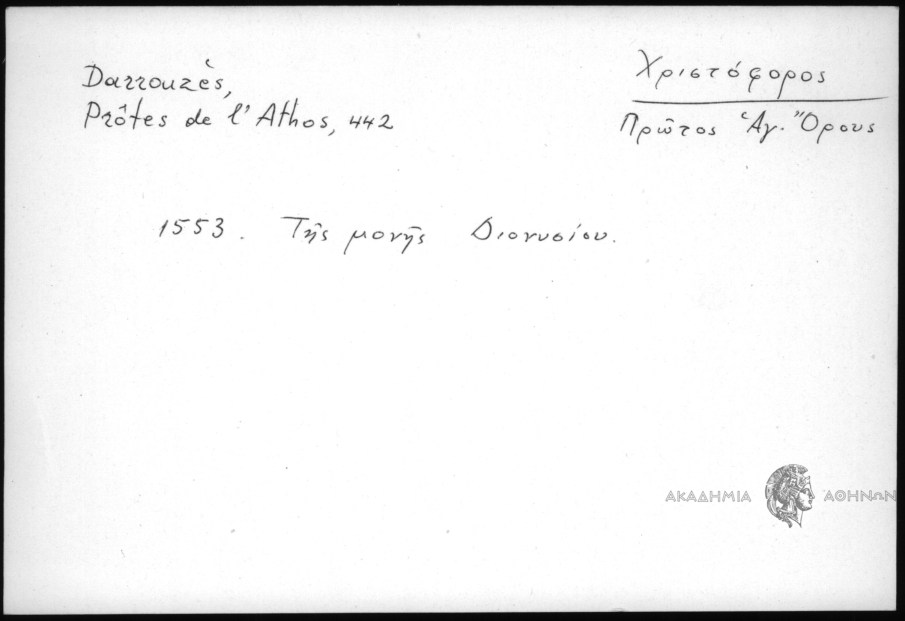 Darrouzès,
Prôtes de l'Athos, 442
Χριστόφορος
Πρῶτος Ἁγ. Ὄρους
1553. Τῆς μονῆς Διονυσίου.
ΑΚΑΔΗΜΙΑ ΑΘΗΝΩΝ